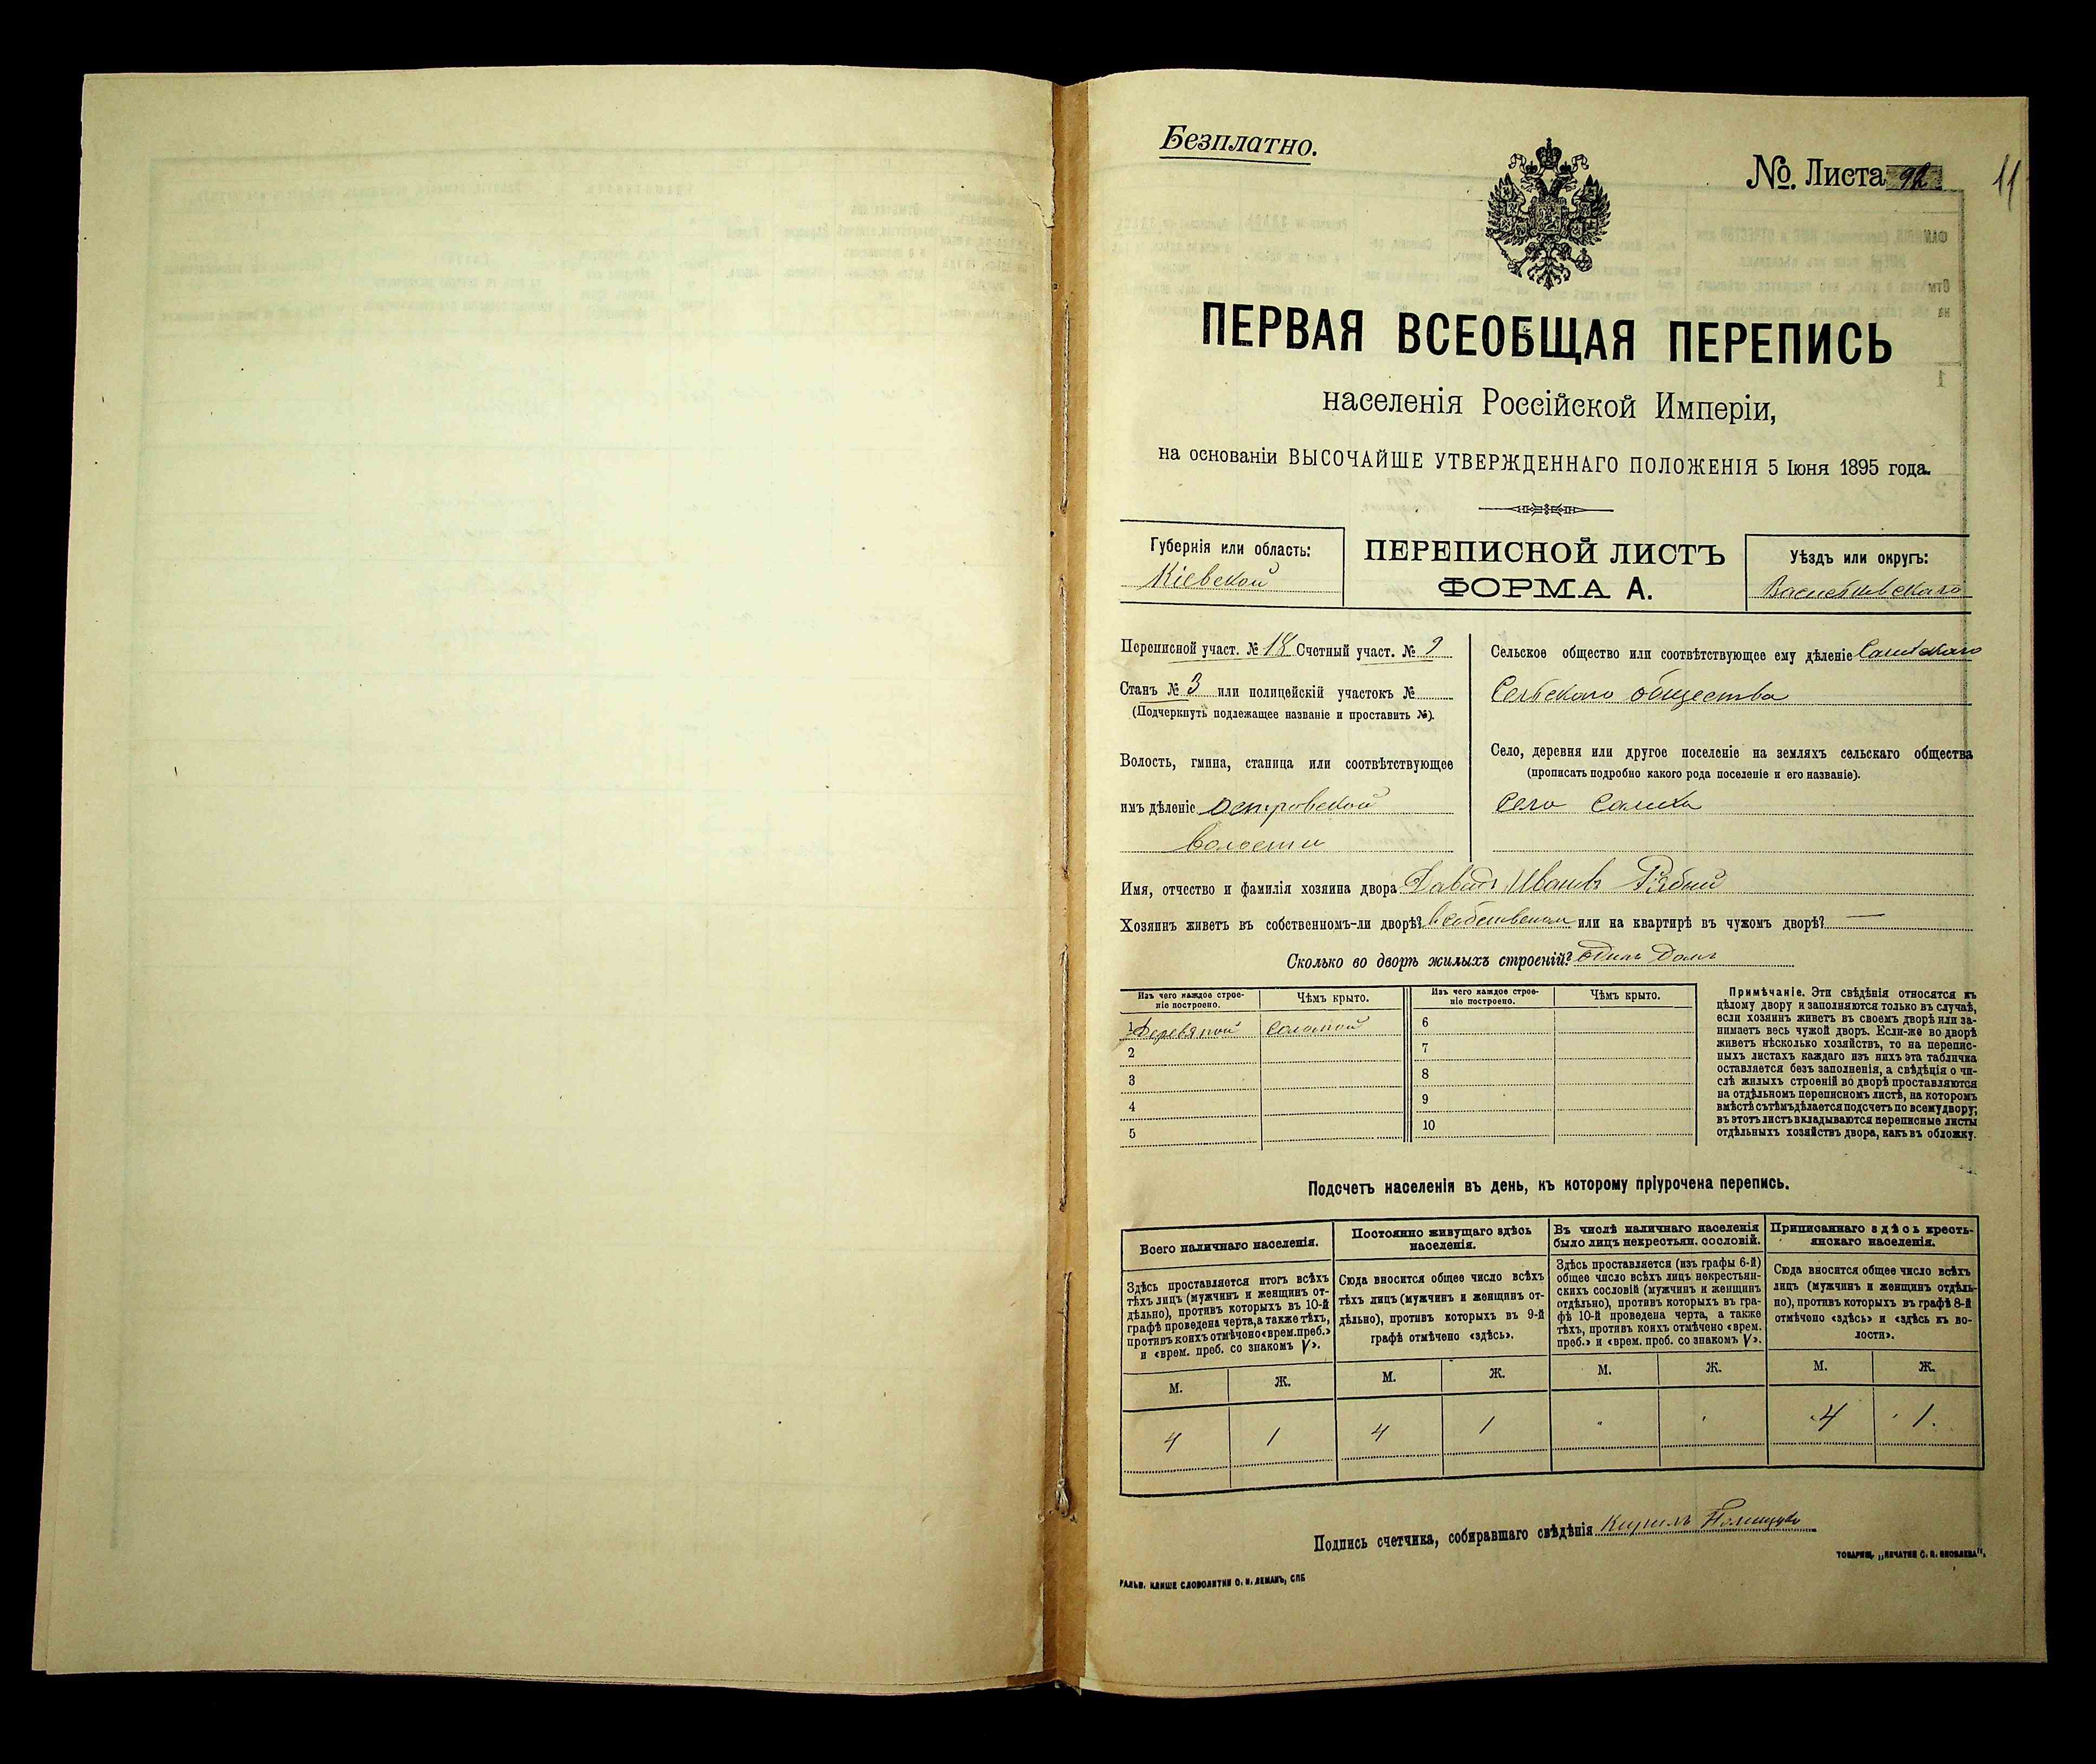 Безплатно.
№. Листа
11
ПЕРВАЯ ВСЕОБЩАЯ ПЕРЕПИСЬ
населенія Россійской Имперіи,
на основаніи ВЫСОЧАЙШЕ УТВЕРЖДЕННАГО ПОЛОЖЕНІЯ 5 Іюня 1895 года.
Губернія или область:
Кіевской
ПЕРЕПИСНОЙ ЛИСТЪ
ФОРМА А.
Уѣздъ или округъ:
Васильковскаго
Переписной участ. № 18 Счетный участ. № 9
Станъ № 3 или полицейскій участокъ №
(Подчеркнуть подлежащее названіе и проставить №).
Волость, гмина, станица или соотвѣтствующее
имъ дѣленіе Островской
Волости
Сельское общество или соотвѣтствующее ему дѣленіе
Сельскаго общества
Село, деревня или другое поселеніе на земляхъ сельскаго общества
(прописать подробно какого рода поселеніе и его названіе).
Село
Имя, отчество и фамилія хозяина двора Давидъ Ивановъ Рябий
Хозяинъ живетъ въ собственномъ-ли дворѣ? или на квартирѣ въ чужомъ дворѣ? —
Сколько во дворѣ жилыхъ строеній? одинъ Домъ
Изъ чего каждое строе-
ніе построено.
Чѣмъ крыто.
Изъ чего каждое строе-
ніе построено.
Чѣмъ крыто.
1 Деревяной Соломой
2
3
4
5
6
7
8
9
10
Примѣчаніе. Эти свѣдѣнія относятся къ
цѣлому двору и заполняются только въ случаѣ,
если хозяинъ живетъ въ своемъ дворѣ или за-
нимаетъ весь чужой дворъ. Если-же во дворѣ
живетъ нѣсколько хозяйствъ, то на перепис-
ныхъ листахъ каждаго изъ нихъ эта табличка
оставляется безъ заполненія, а свѣдѣція о чи-
слѣ жилыхъ строеній во дворѣ проставляются
на отдѣльномъ переписномъ листѣ, на которомъ
вмѣстѣ съ тѣмъ дѣлается подсчетъ по всему двору;
въ этотъ листъ вкладываются переписные листы
отдѣльныхъ хозяйствъ двора, какъ въ обложку.
Подсчетъ населенія въ день, къ которому пріурочена перепись.
Всего наличнаго населенія.
Здѣсь проставляется итогъ всѣхъ
тѣхъ лицъ (мужчинъ и женщинъ от-
дѣльно), противъ которыхъ въ 10-й
графѣ проведена черта, а также тѣхъ,
противъ коихъ отмѣчено «врем. преб.»
и «врем. преб. со знакомъ V».
Постоянно живущаго здѣсь
населенія.
Сюда вносится общее число всѣхъ
тѣхъ лицъ (мужчинъ и женщинъ от-
дѣльно), противъ которыхъ въ 9-й
графѣ отмѣчено «здѣсь».
Въ числѣ наличнаго населенія
было лицъ некрестьян. сословій.
Здѣсь проставляется (изъ графы 6-й)
общее число всѣхъ лицъ некрестьян-
скихъ сословій (мужчинъ и женщинъ
отдѣльно), противъ которыхъ въ гра-
фѣ 10-й проведена черта, а также
тѣхъ, противъ коихъ отмѣчено «врем.
преб.» и «врем. преб. со знакомъ V».
Приписаннаго здѣсь кресть-
янскаго населенія.
Сюда вносится общее число всѣхъ
лицъ (мужчинъ и женщинъ отдѣль-
но), противъ которыхъ въ графѣ 8-й
отмѣчено «здѣсь» и «здѣсь къ во-
лости».
М. Ж. М. Ж. М. Ж. М. Ж.
4 1 4 1 " " 4 1.
Подпись счетчика, собиравшаго свѣдѣнія Кирилъ
ТОВАРИЩ. „ПЕЧАТНЯ С. П. ЯКОВЛЕВА".
ГАЛЬВ. КЛИШЕ СЛОВОЛИТНИ О. И. ЛЕМАНЪ, СПБ